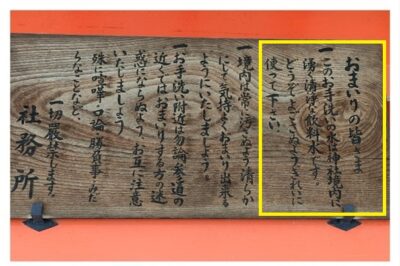 おまいりの皆さま
一このお手洗いの水は神社境内に
湧く清浄な飲料水です。
どうぞよごさぬようきれいに
使って下さい
一境内は常に汚さぬよう清らか
にして気持よくおまいり出来る
ようにいたしましょう。
一お手洗い附近は勿論参道の
近くではおまいりする方の迷
惑にならぬよう お互に注意
いたしましょう
殊に喧嘩 口論 勝負事 みだ
らなことなど、
一切厳禁します。
社務所